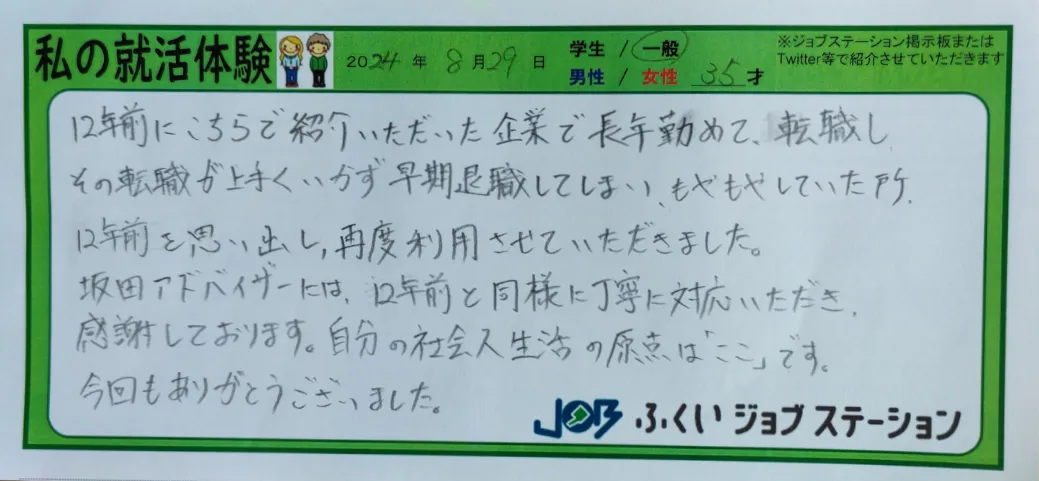 私の就活体験
2024年 8月29日
学生 / 一般
男性 / 女性 35才
※ジョブステーション掲示板または
Twitter等で紹介させていただきます
12年前にこちらで紹介いただいた企業で長年勤めて、転職し
その転職が上手くいかず早期退職してしまい、もやもやしていた所、
12年前を思い出し、再度利用させていただきました。
坂田アドバイザーには、12年前と同様に丁寧に対応いただき、
感謝しております。自分の社会人生活の原点は「ここ」です。
今回もありがとうございました。
JOB ふくいジョブステーション